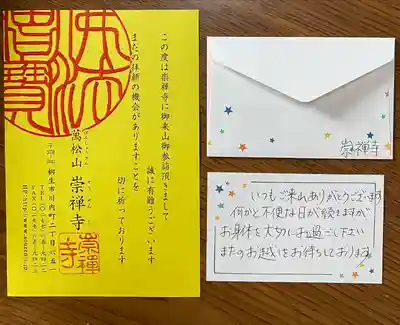 佛法僧寶
この度は崇禅寺に御来山御参詣頂きまして
誠に有難うございます
またの拝顔の機会がありますことを
切に祈っております
萬松山 崇禅寺
桐生市川内町二丁目六五一
崇禅寺
崇禅寺
いつもご来山ありがとうございます
何かと不便な日が続きますが
お身体を大切にお過ごし下さい
またのお越しをお待ちしております。